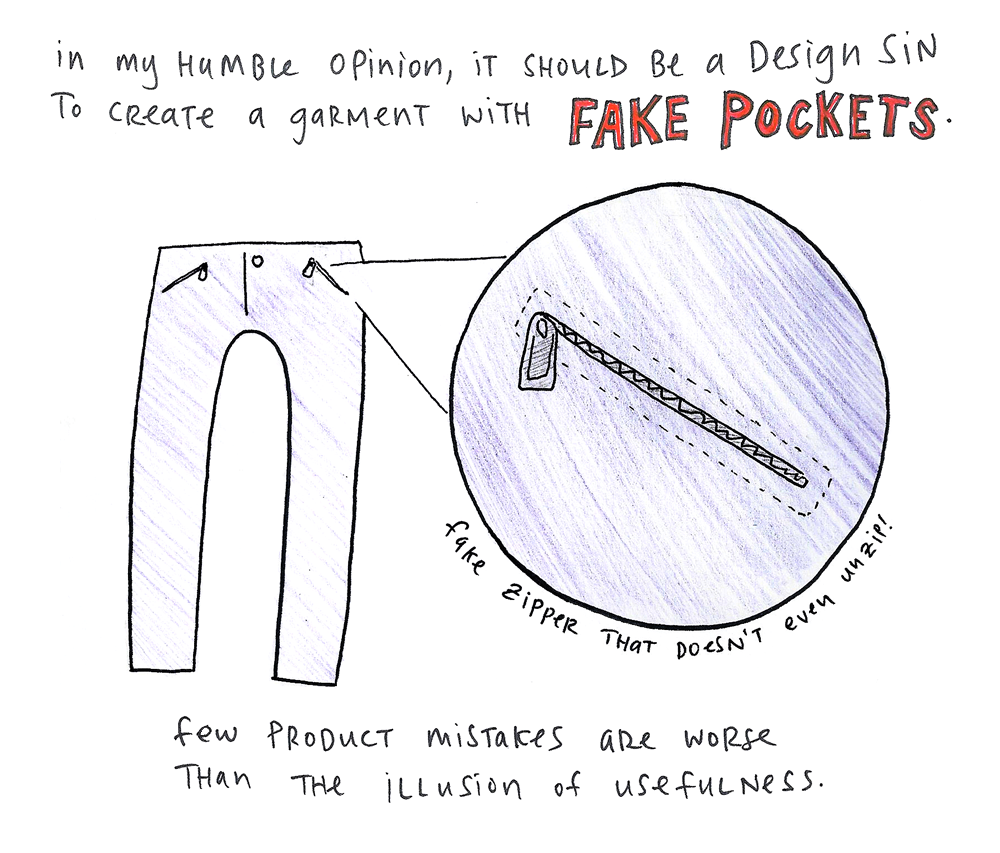 in my HumBLe OPinion, iT SHOULD Be a Design SiN
To CReaTe a gaRMenT WiTH FAKE POCKETS.
fake ZiPPeR THaT DOesN'T even unzip!
few PRODUCT misTakes aRe woRse
THan THe iLLusion of usefuLNess.